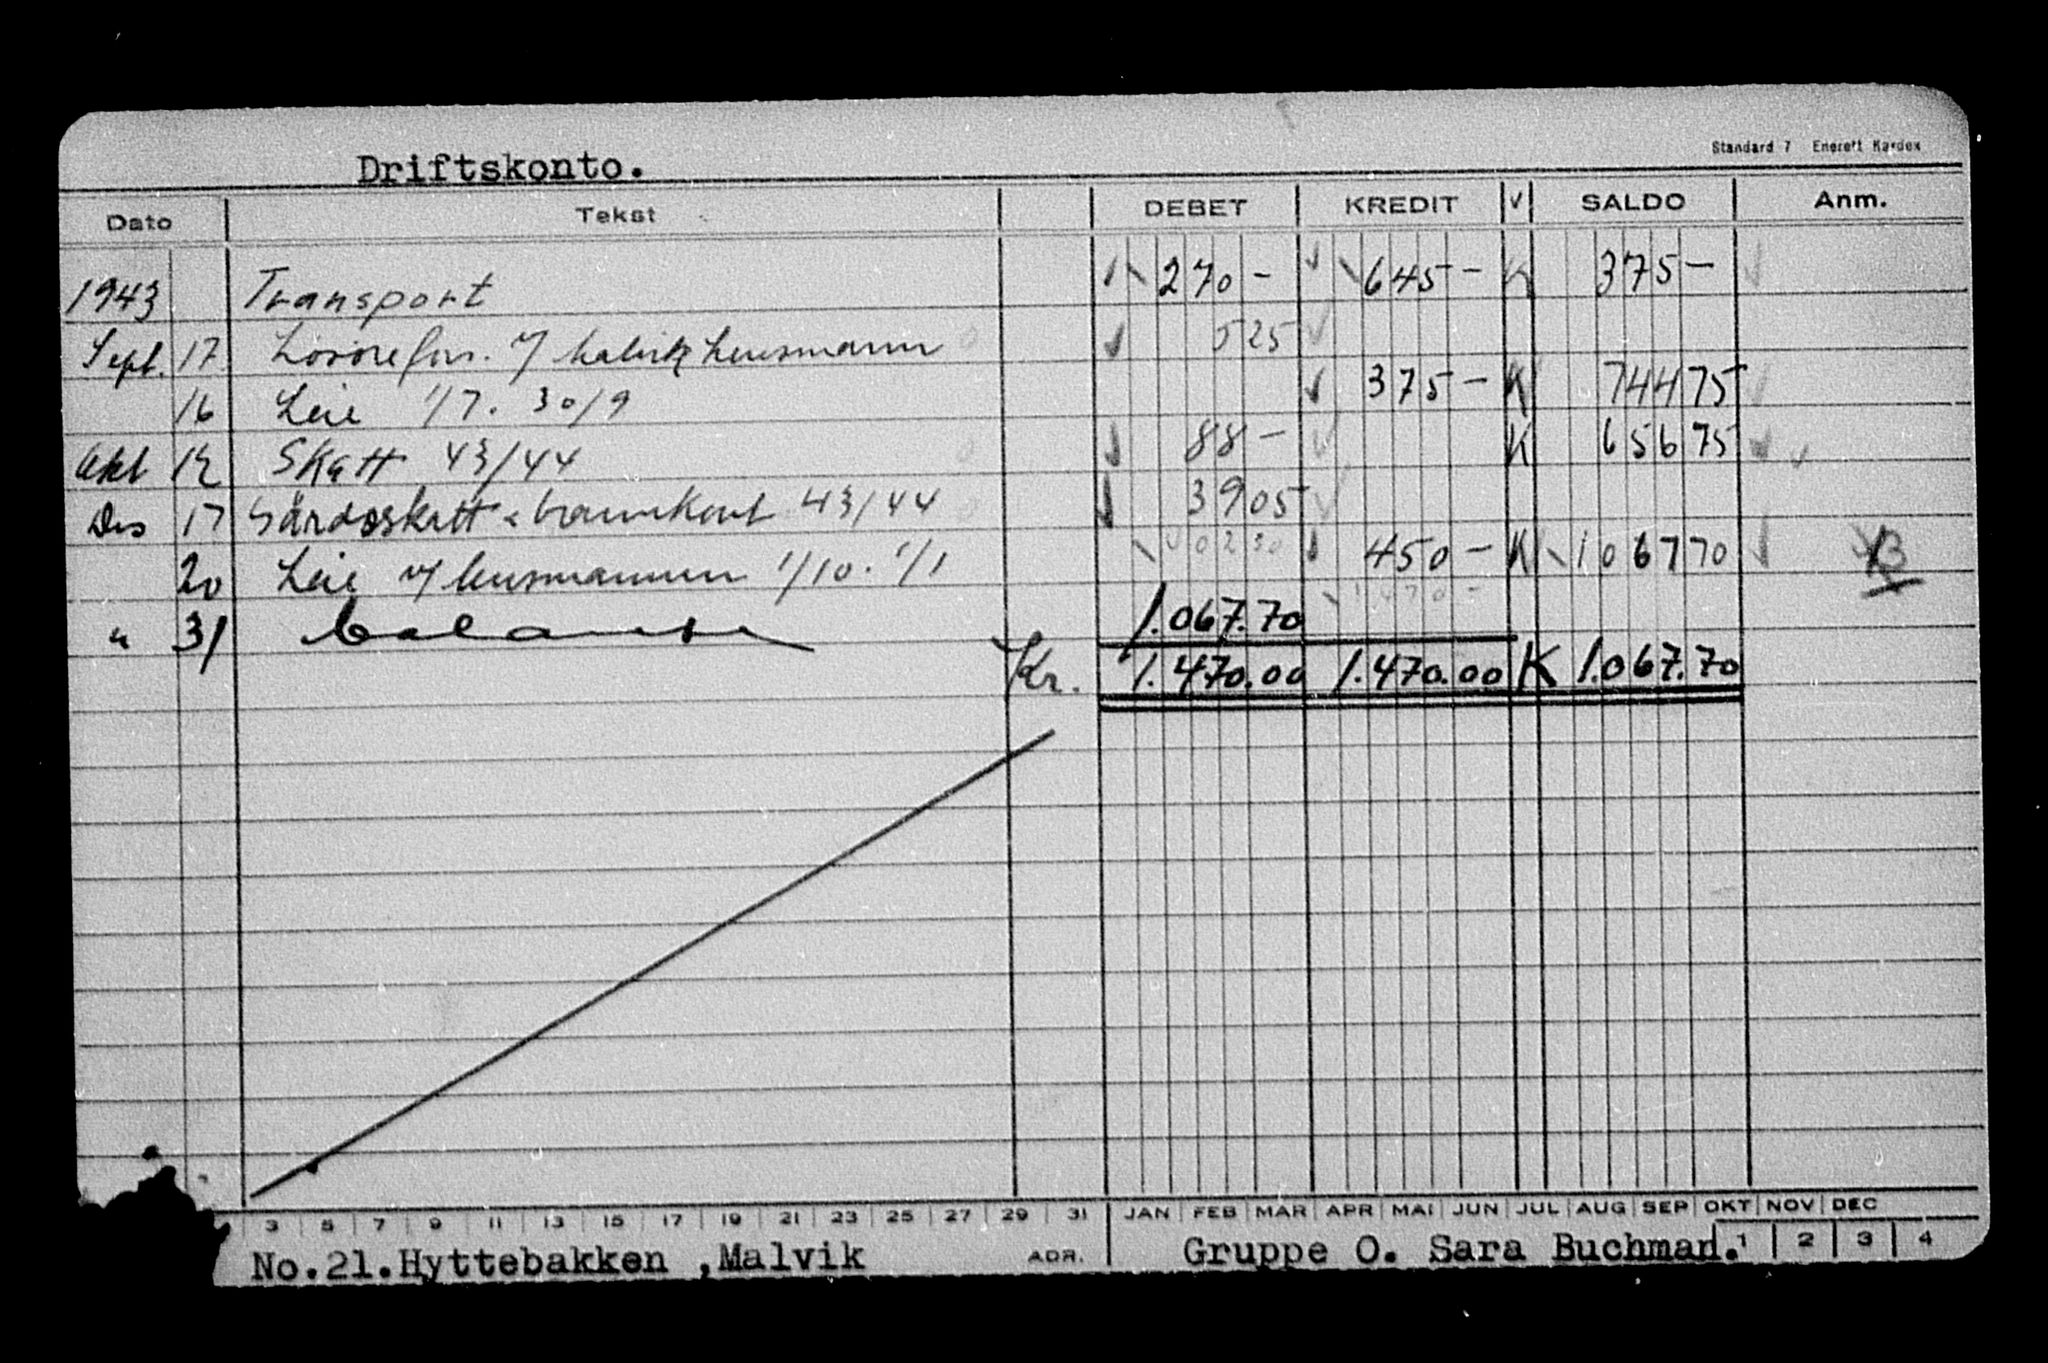 Standard 7 Enerett Kardex
Driftskonto.
Dato Tekst DEBET KREDIT V SALDO Anm.
1943 Transport 270 - 645 - K 375 -
Sept. 17 Lensmann 525
16 Leie 1/7. 30/9 375 - K 74475
Okt 12 Skatt 43/44 88 - K 65675
Des 17 43/44 3905
20 Leie v/ lensmannen 1/10. 1/1 40230 450 - K 106770
" 31 balanse 1.067.70 1470 -
Kr. 1.470.00 1.470.00 K 1.067.70
3 5 7 9 11 13 15 17 19 21 23 25 27 29 31 JAN FEB MAR APR MAI JUN JUL AUG SEP OKT NOV DEC
No.21.Hyttebakken ,Malvik ADR. Gruppe O. Sara Buchman. 1 2 3 4